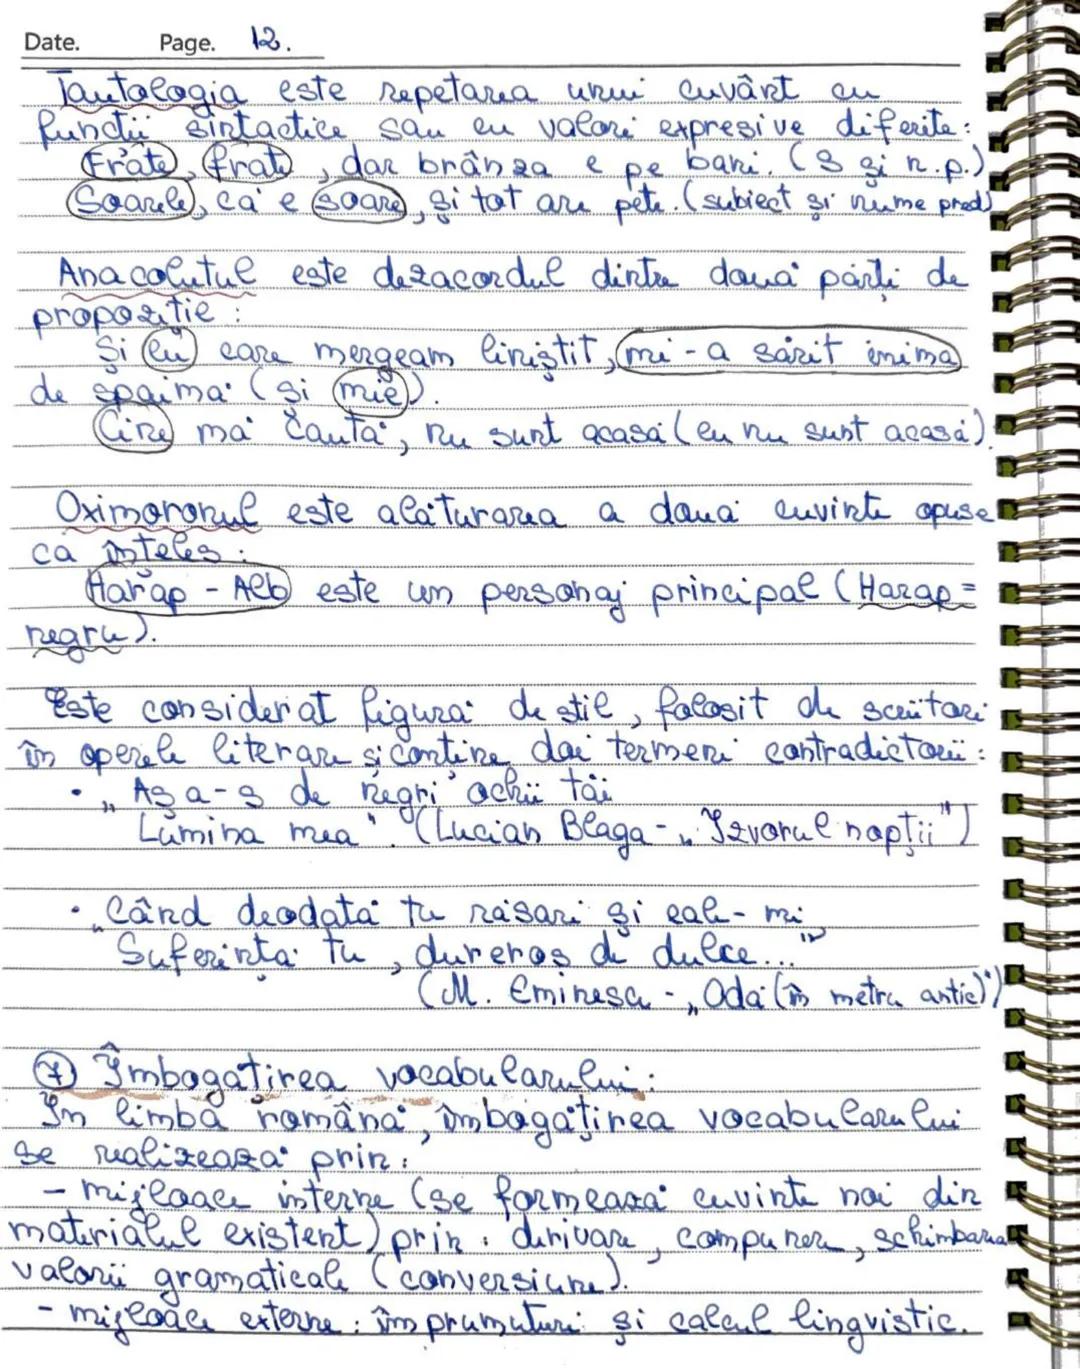 Date. Page. 12.
Tautologia este repetarea unui cuvânt cu
funcții sintactice sau cu valori expresive diferite:
Frate, frate, dar brânza e pe bani. (S și n.p.)
Soarele, că e soare, și tot are pete. (subiect și nume pred)
Anacolutul este dezacordul dintre două părți de
propoziție:
Și eu care mergeam liniștit, mi-a sărit inima
de spaimă (și mie).
Cine mă caută, nu sunt acasă (eu nu sunt acasă).
Oximoronul este alăturarea a două cuvinte opuse
ca înțeles:
Harap-Alb este un personaj principal (Harap=
negru).
Este considerat figură de stil, folosit de scriitori
în operele literare și conține doi termeni contradictorii:
• „Așa-s de negri ochii tăi
Lumina mea". (Lucian Blaga - „Izvorul nopții")
• „Când deodată tu răsari și cale-mi
Suferință tu, dureros de dulce..."
(M. Eminescu - „Odă (în metru antic)")
7 Îmbogățirea vocabularului:
În limba română, îmbogățirea vocabularului
se realizează prin:
- mijloace interne (se formează cuvinte noi din
materialul existent) prin: derivare, compunere, schimbarea
valorii gramaticale (conversiune).
- mijloace externe: împrumuturi și calcul lingvistic.